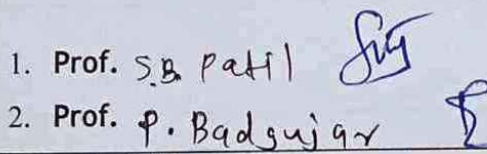 1. Prof. S.B. Patil
2. Prof. P. Badgujar